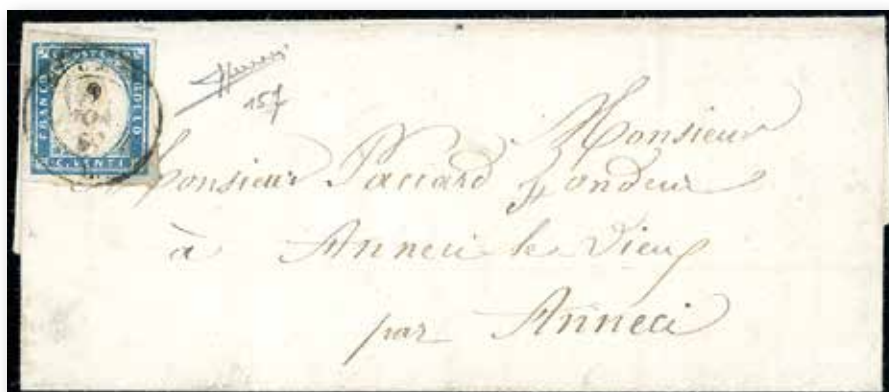 C. POSTE
FRANCO
BOLLO
C. VENTI
9
60
157
Monsieur
Monsieur Paccard Fondeur
à Anneci le Vieux
par Anneci